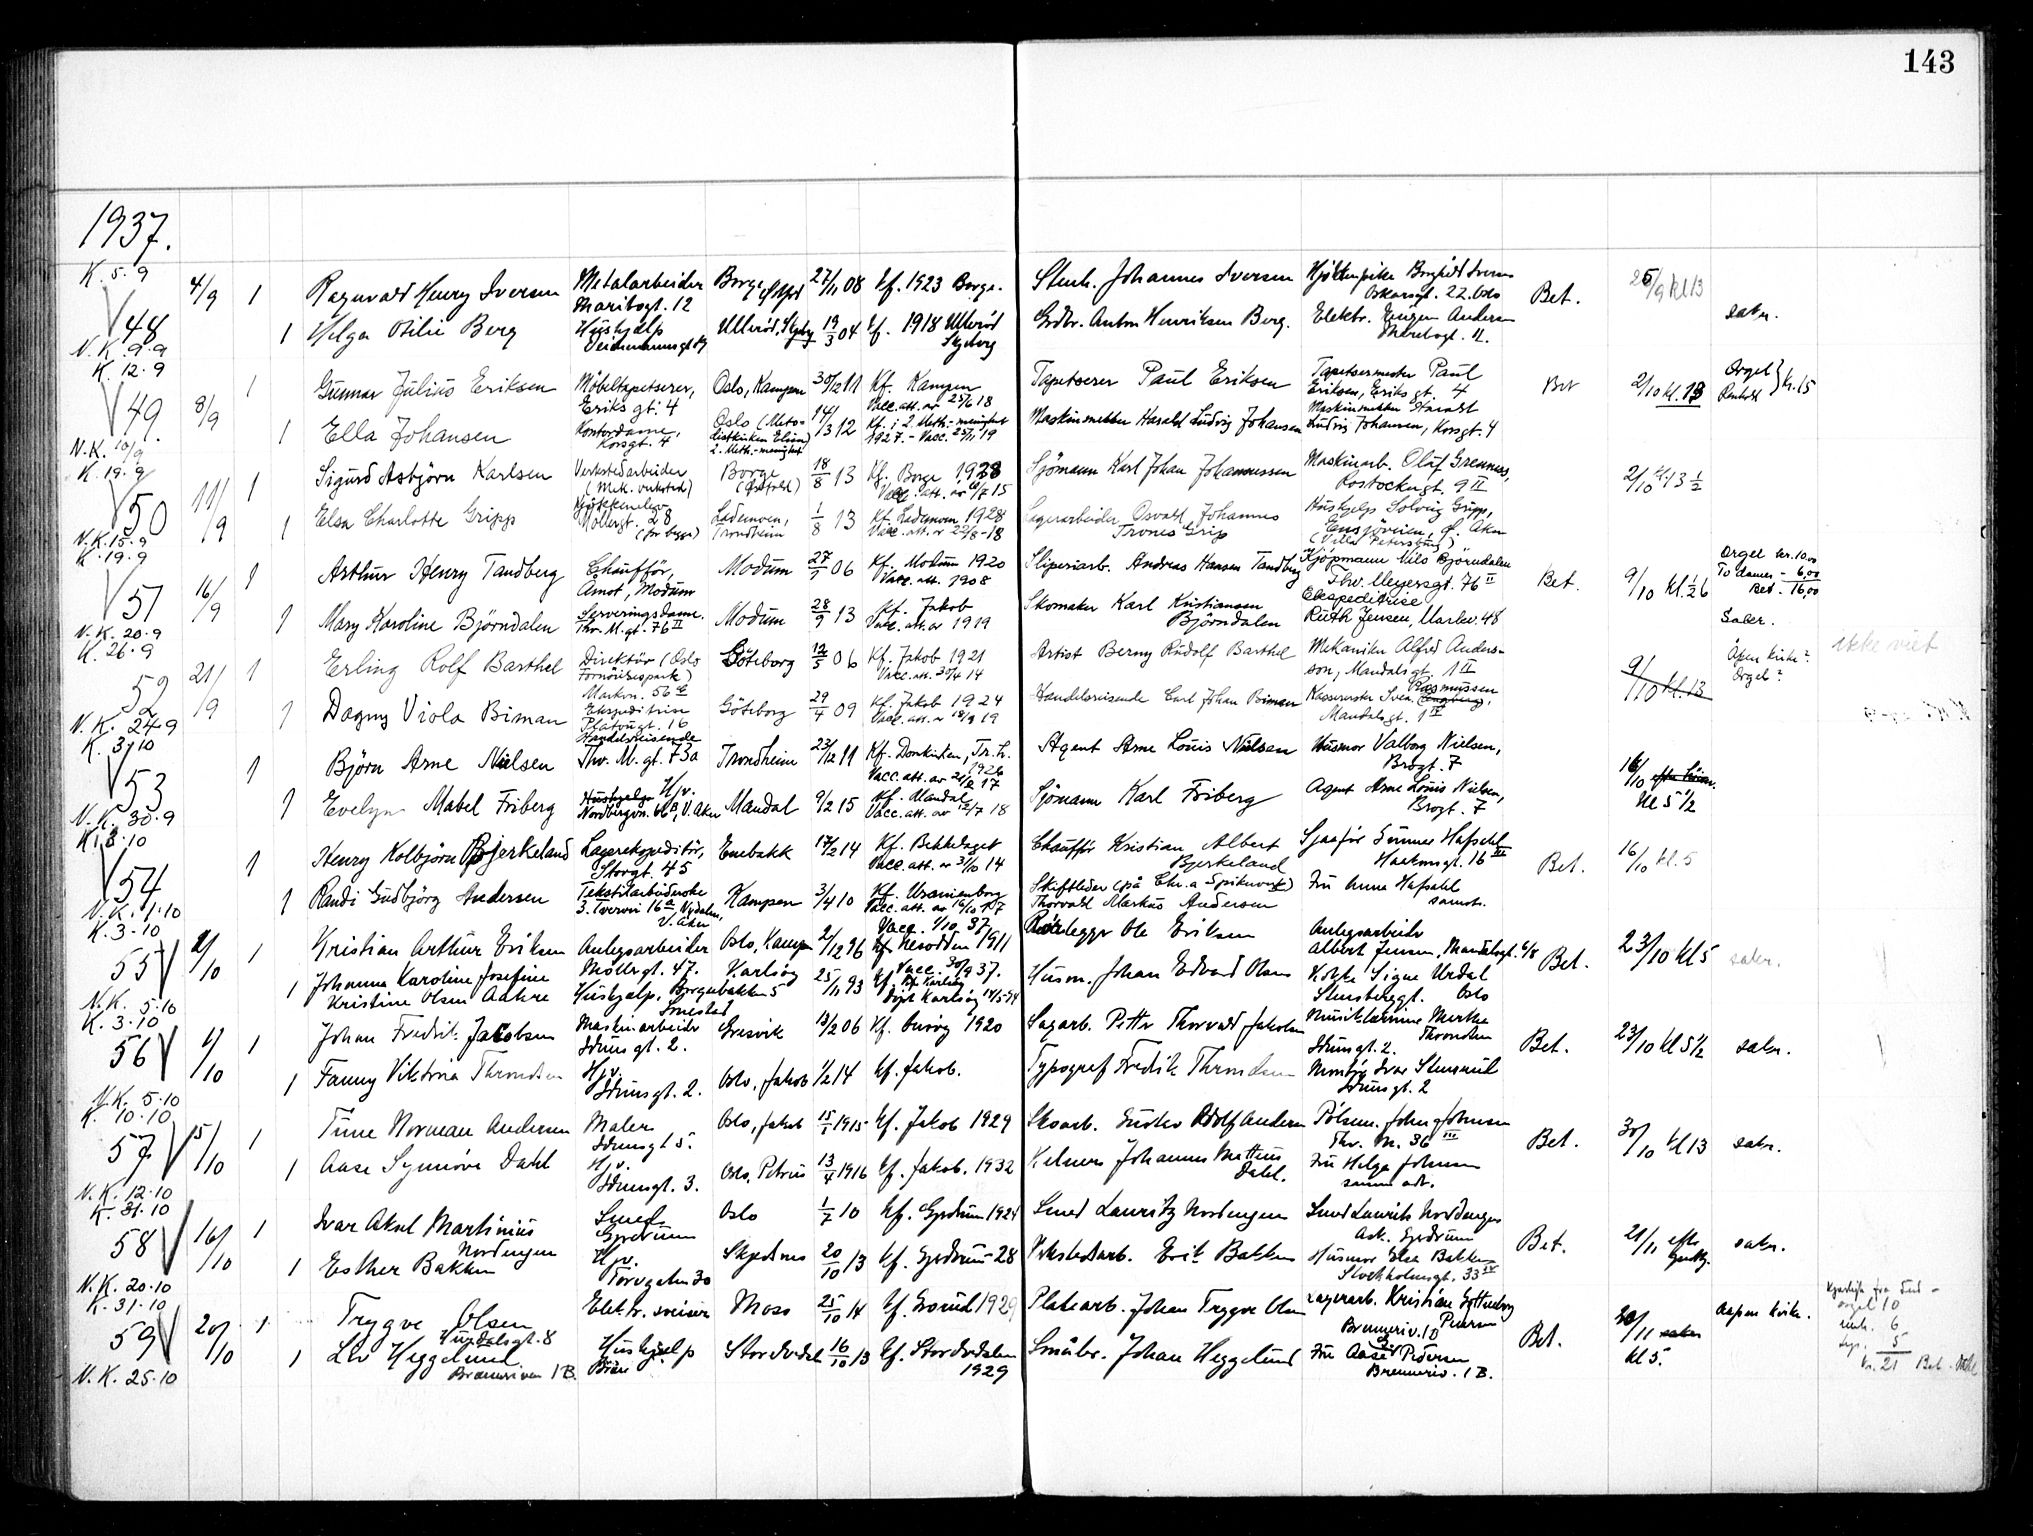 143
1937.
K. 5.9
4/9 1 Ragnvald Henry Iversen Metalarbeider Borge 27/11 08 Kf. 1923 Borge. Stenh. Johannes Iversen Iversen Bet. kl 13
Maribogt. 12 22. Oslo
48 1 Helga Otilie Berg Hushjelp Ullerød, 19/3 04 Kf. 1918 Ullerød Grdbr. Anton Henriksen Berg. Elektr. Eugen Andersen sakr.
N.K. 9.9 11.
K. 12.9
49 8/9 1 Gunnar Julius Eriksen Møbeltapetserer, Oslo, Kampen 30/12 11 Kf. Kampen Tapetserer Paul Eriksen Tapetsermester Paul Bet 2/10 kl. 13 Orgel kr. 15
Eriks gt. 4 Vacc. att. av 25/6 18 Eriksen, Eriks gt. 4
1 Ella Johansen Kontordame, Oslo (Meto- 14/13 12 Kf. i 2. Meth.-menighet Maskinmester Harald Ludvig Johansen Maskinmester Harald
Korsgt. 4 2. Meth.-menighet 1927. - Vacc. 25/11 19 Ludvig Johansen, Korsgt. 4
N.K. 10/9
K. 19.9
50 11/9 1 Sigurd Asbjörn Karlsen Verkstedarbeider Borge 18/8 13 Kf. Borge 1928 Sjömann Karl Johan Johannessen Maskinarb. Olaf 2/10 kl. 13 1/2
(Mek. verksted) (Østfold) Vacc. att. av /7 15 Rostockgt. 9 II
1 Elsa Charlotte Gripp Møllergt. 28 Lademoen, 1/8 13 Kf. Lademoen 1928 Lagerarbeider Osvald Johannes Hushjelp Solveig Gripp,
(for begge) Trondheim Vacc. att. av 22/8-18 Trones Grip Ensjöveien, Ø. Aker
N.K. 15.9 (Villa Petersborg)
K. 19.9
51 16/9 1 Arthur Henry Tandberg Chaufför, Modum 27/1 06 Kf. Modum 1920 Sliperiarb. Andreas Hansen Tandberg Kjöpmann Nils Björndalen Bet. 9/10 kl. 1/2 6 Orgel kr. 10.00
Åmot, Modum Vacc. att. 1908 Thv. Meyersgt. 76 II To damer - 6,00
Bet. 16,00
1 Mary Karoline Björndalen Serveringsdame. Modum 28/9 13 Kf. Jakob Skomaker Karl Kristiansen Ekspeditrise
Thv. M. gt. 76 II Vacc. att. av 1919 Björndalen Ruth Jensen, Markv. 48 Saker.
N.K. 20.9
K. 26.9
52 21/9 1 Erling Rolf Barthel Direktör (Oslo Göteborg 12/5 06 Kf. Jakob 1921 Artist Berny Rudolf Barthel Mekaniker Alfred Anders- 9/10 kl. 13 Åpen kirke? ikke viet
Fornöielsespark) Vacc. att. 30/4 14 son, Mandalsgt. 1 II Orgel?
Markvn. 56
1 Dagny Viola Biman Ekspeditrise Göteborg 29/4 09 Kf. Jakob 1924 Handelsreisende Carl Johan Biman Kassererske Svea Rasmussen
Platougt. 16 Vacc. att. av 19 Mandalsgt. 1 II
N.K. 24.9
K. 3/10
53 1 Björn Arne Nielsen Handelsreisende Trondheim 23/12 11 Kf. Domkirken, Tr.h. Agent Arne Louis Nielsen Husmor Valborg Nielsen, 16/10
Thv. M. gt. 73a 1926 Brogt. 7 Kl 5 1/2
Vacc. att. av 17
1 Evelyn Mabel Friberg Hushjelp Hjv. Mandal 9/2 15 Kf. Mandal Sjömann Karl Friberg Agent Arne Louis Nielsen,
Nordbergvn. 66B, V. Aker Vacc. att. av /7 18 Brogt. 7
N.K. 30.9
K. 3.10
54 1 Henry Kolbjörn Bjerkeland Lagerekspeditör, Enebakk 17/2 14 Kf. Bekkelaget Chaufför Kristian Albert Hafsahl Bet. 16/10 kl. 5
Storgt. 45 Vacc. att. av 31/10 14 Bjerkeland Haakonsgt. 16 III
1 Randi Gudbjörg Andersen Tekstilarbeiderske Kampen 3/4 10 Kf. Uranienborg Skiftleder (på Chr.a Spikerverk) Fru Anna Hafsahl
3. Tverrvei 16a, Nydalen, Vacc. att. av 16/10 17 Thorvald Markus Andersen samst.
V. Aker
N.K. 1.10
K. 3.10
55 2/10 1 Kristian Arthur Eriksen Anlegsarbeider Oslo, Kampen 2/12 96 Vacc. 1/10 37 Rörlegger Ole Eriksen Anlegsarbeider Bet. 23/10 kl 5 sakr.
Møllergt. 47. Kf. Nesodden 1911 Albert Jensen, Mandalsgt. 6/8
1 Johanna Karoline Josefine Hushjelp, Borgenbakken 5 Karlsøy 25/11 93 Vacc. 30/9 37. Husm. Johan Edvard Olsen Signe Urdal
Kristine Olsen Aakre Smestad Döpt Karlsøy 14/5-94 Stensberggt. Oslo
N.K. 5.10
K. 3.10
56 1/10 1 Johan Fredrik Jakobsen Maskinarbeider Gresvik 13/2 06 Kf. Onsøy 1920 Sagarb. Petter Thorvald Jakobsen Musiklærerinne Bet. 23/10 kl 5 1/2 sakr.
Idunsgt. 2. Throndsen Idunsgt. 2.
1 Fanny Viktoria Throndsen Hjv. Oslo, Jakob 1/2 14 Kf. Jakob. Typograf Fredrik Throndsen Montör Ivar
Idunsgt. 2. Idunsgt. 2
N.K. 5.10
K. 10.10
57 5/10 1 Tune Norman Andersen Maler Oslo, Jakob 15/1 1915 Kf. Jakob 1929 Skoarb. Gustav Adolf Andersen Pølsem. John Johnsen Bet. 30/10 kl 13 sakr.
Idunsgt 5. Thv. M. 36 III
1 Aase Synnöve Dahl Hjv. Oslo, Petrus 13/4 1916 Kf. Jakob. 1932 Kelner Johannes Mattius Fru Helga Johnsen
Idunsgt. 3. Dahl. samme adr.
N.K. 12.10
K. 31.10
58 16/10 1 Ivar Aksel Martinius Smed Oslo 1/7 10 Kf. Gjerdrum 1924 Smed Lauritz Nordengen Smed Laurits Nordengen Bet. 21/11 efter sakr.
Nordengen Gjerdrum Ask. Gjerdrum
1 Esther Bakken Hjv. Skjetnes 20/10 13 Kf. Gjerdrum - 28 Verkstedarb. Erik Bakken Husmor Elsa Bakken
Torvgaten 30 Stockholmsgt. 33 IV
N.K. 20.10
K. 31.10
59 20/10 1 Trygve Olsen Elektr. sveiser Moss 25/10 14 Kf. Grorud 1929 Platearb. Johan Trygve Olsen Lagerarb. Kristian Bet. 20/11 Aapen kirke.
Hurdalsgt. 8 Brenneriv. 1 B Petersen kl 5. orgel 10
1 Liv Heggelund Hushjelp Stordalen 16/10 13 Kf. Stordalen Småbr. Johan Heggelund Fru Aase Pedersen 6
Brenneriveien 1B. 1929 Brenneriv. 1 B. 5
N.K. 25.10 kr. 21 Bet.